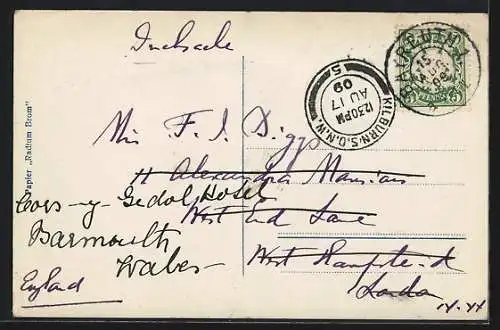 Drucksache
BAYREUTH 1
15 AUG
5 PFENNIG 5
KILBURN.S.O.N.W.
12.30PM
AU 17
09
S
Papier „Radium Brom"
Miss F. I. Diggs
11 Alexandra Mansions
Cors-y-Gedol Hotel
West End Lane
Barmouth
West Hampstead
Wales
London
England